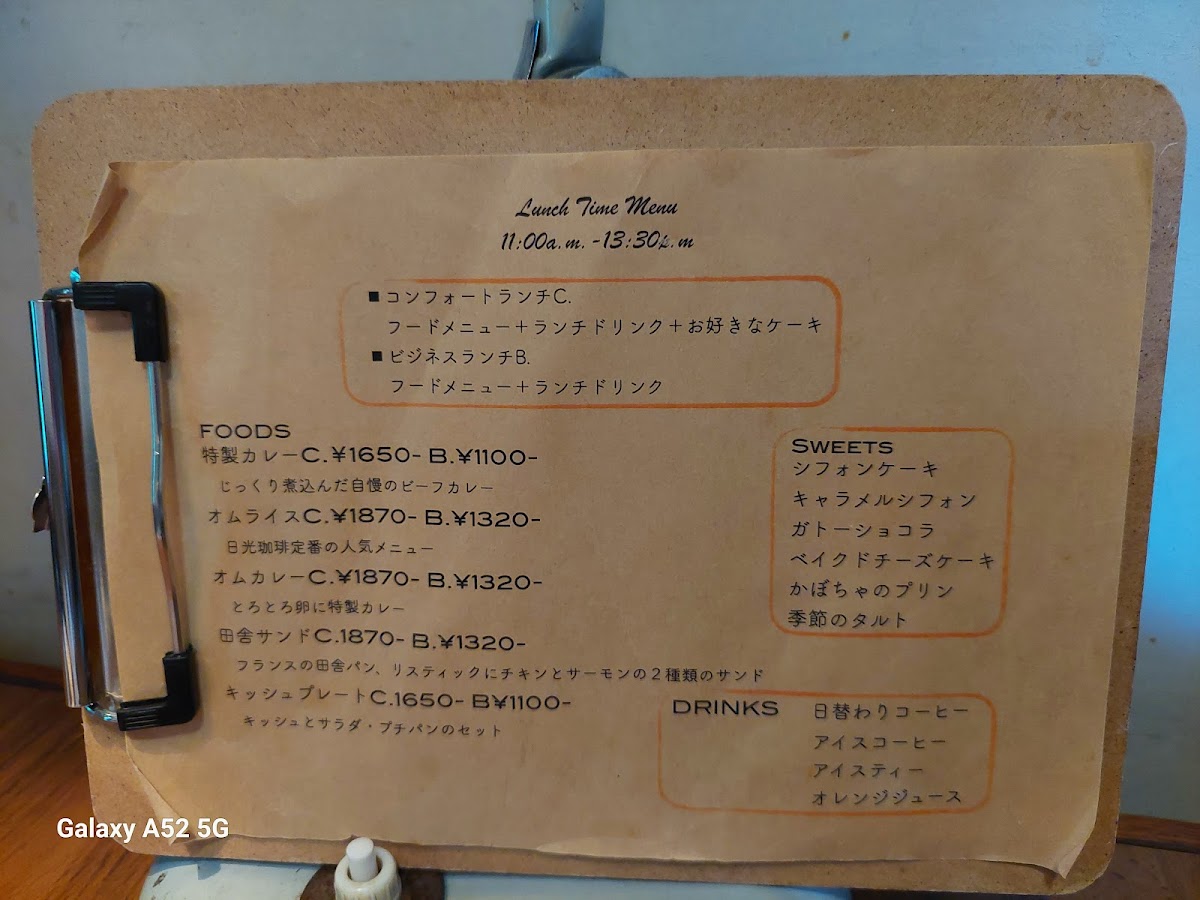 Lunch Time Menu
11:00a.m.-13:30p.m
■コンフォートランチC.
フードメニュー＋ランチドリンク＋お好きなケーキ
■ビジネスランチB.
フードメニュー＋ランチドリンク
FOODS
特製カレーC.¥1650- B.¥1100-
じっくり煮込んだ自慢のビーフカレー
オムライスC.¥1870- B.¥1320-
日光珈琲定番の人気メニュー
オムカレーC.¥1870- B.¥1320-
とろとろ卵に特製カレー
田舎サンドC.1870- B.¥1320-
フランスの田舎パン、リスティックにチキンとサーモンの２種類のサンド
キッシュプレートC.1650- B¥1100-
キッシュとサラダ・プチパンのセット
SWEETS
シフォンケーキ
キャラメルシフォン
ガトーショコラ
ベイクドチーズケーキ
かぼちゃのプリン
季節のタルト
DRINKS 日替わりコーヒー
アイスコーヒー
アイスティー
オレンジジュース
Galaxy A52 5G